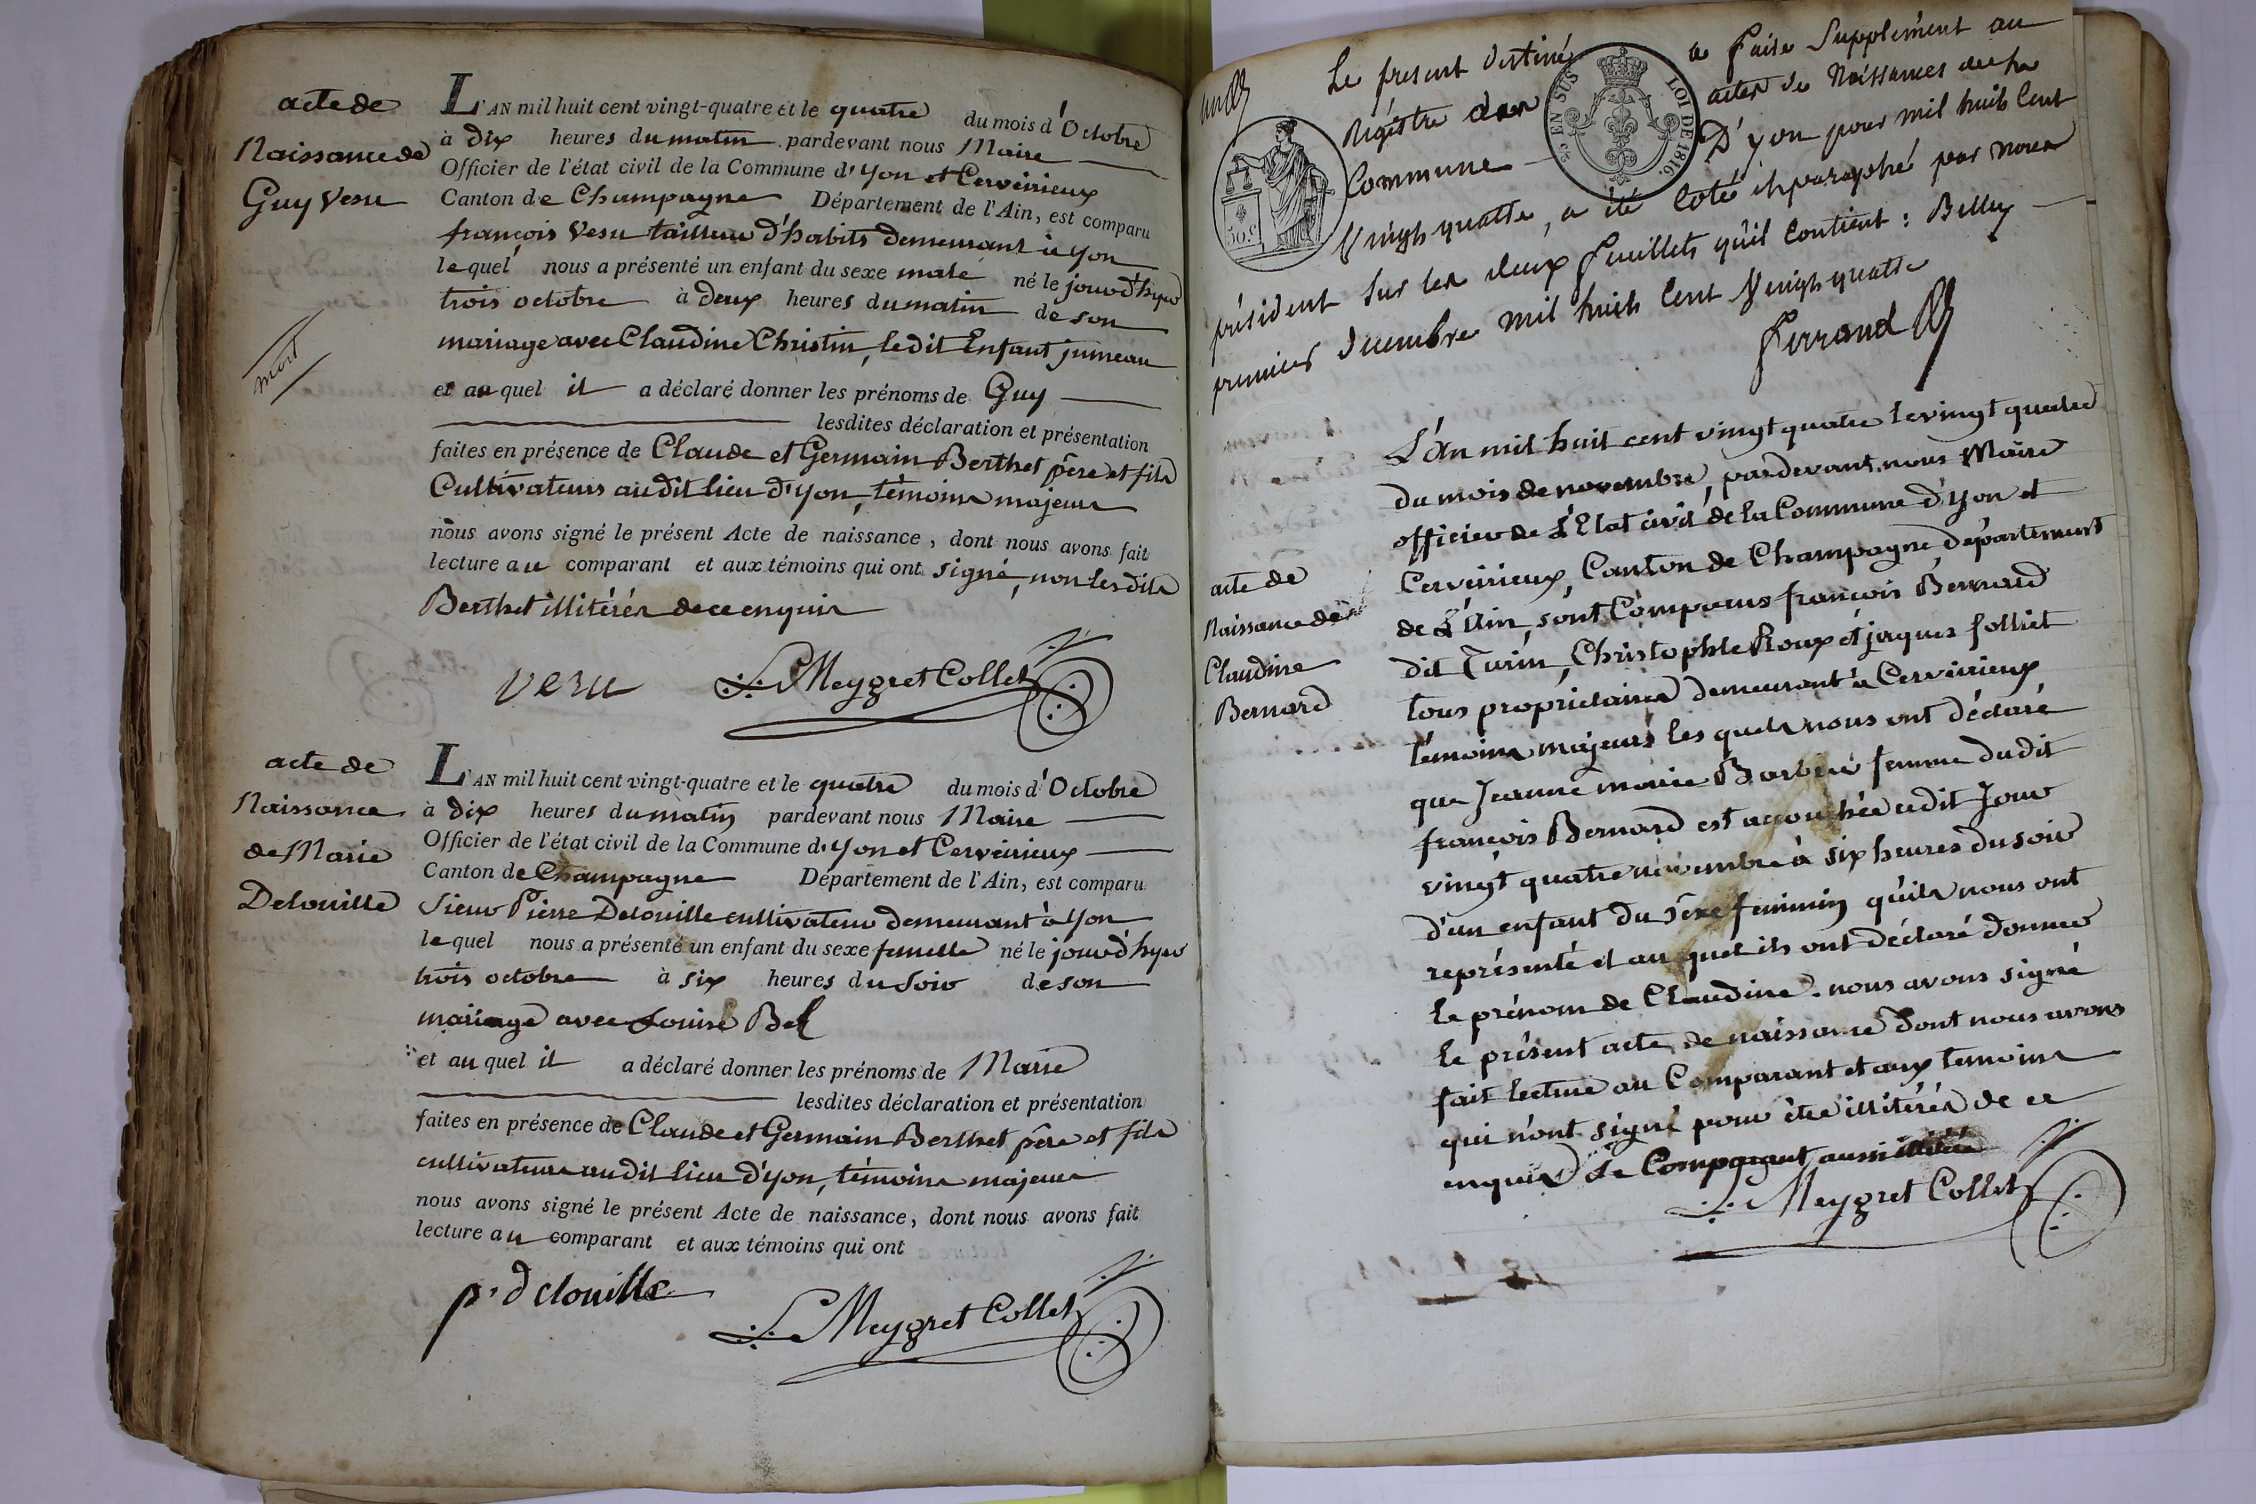 acte de
Naissance de
Guy Vesu
mort
L'AN mil huit cent vingt-quatre et le quatre du mois d'Octobre
à dix heures du matin pardevant nous Maire
Officier de l'état civil de la Commune d'Yon et Cerveirieux
Canton de Champagne Département de l'Ain, est comparu
françois Vesu tailleur d'habits demeurant à yon
lequel nous a présenté un enfant du sexe male né le jourd'hyer
trois octobre à deux heures du matin de son
mariage avec Claudine Christin, ledit Enfant jumeau
et au quel il a déclaré donner les prénoms de Guy
lesdites déclaration et présentation
faites en présence de Claude et Germain Berthet père et fils
Cultivateurs audit lieu d'yon, témoins majeurs
nous avons signé le présent Acte de naissance, dont nous avons fait
lecture au comparant et aux témoins qui ont signé, non lesdits
Berthet illitérés de ce enquis
Vesu L. Meygret Collet
acte de
Naissance
de Marie
Delouille
L'AN mil huit cent vingt-quatre et le quatre du mois d'Octobre
à dix heures du matin pardevant nous Maire
Officier de l'état civil de la Commune d'yon et Cerveirieux
Canton de Champagne Département de l'Ain, est comparu
Sieur Pierre Delouille cultivateur demeurant à yon
lequel nous a présenté un enfant du sexe femelle né le jourd'hyer
trois octobre à six heures du soir de son
mariage avec Louise Bel
et au quel il a déclaré donner les prénoms de Marie
lesdites déclaration et présentation
faites en présence de Claude et Germain Berthet père et fils
cultivateurs audit lieu d'yon, témoins majeurs
nous avons signé le présent Acte de naissance, dont nous avons fait
lecture au comparant et aux témoins qui ont
p. delouille L. Meygret Collet
Le present destiné a faire Supplément au
Régistre des actes de Naissances de la
Commune D'yon pour mil huit Cent
Vingt quatre, a été Coté et paraphé par nous
président Sur les deux feuillets qu'il Contient : Belley
premier decembre mil huit Cent Vingt quatre
Ferrand
EN SUS
LOI DE 1816.
50.c
acte de
Naissance de
Claudine
Bernard
L'An mil huit cent vingt quatre le vingt quatre
du mois de novembre, pardevant nous Maire
officier de L'Etat civil de la Commune d'yon et
Cerveirieux, Canton de Champagne département
de L'Ain, sont Comparus françois Bernard
dit Turin, Christophle Roux et jaques folliet
tous propriétaires demeurant à Cerveirieux
témoins majeurs les quels nous ont déclaré
que Jeanne marie Barbier femme dudit
françois Bernard est acouchée cedit Jour
vingt quatre novembre à six heures du soir
d'un enfant du sexe feminin qu'ils nous ont
représenté et au quel ils ont déclaré donner
le prénom de Claudine. nous avons signé
le présent acte de naissance dont nous avons
fait lecture au Comparant et aux temoins
qui n'ont signé pour être illitérés de ce
enquis Le Comparant aussi illitéré
L. Meygret Collet